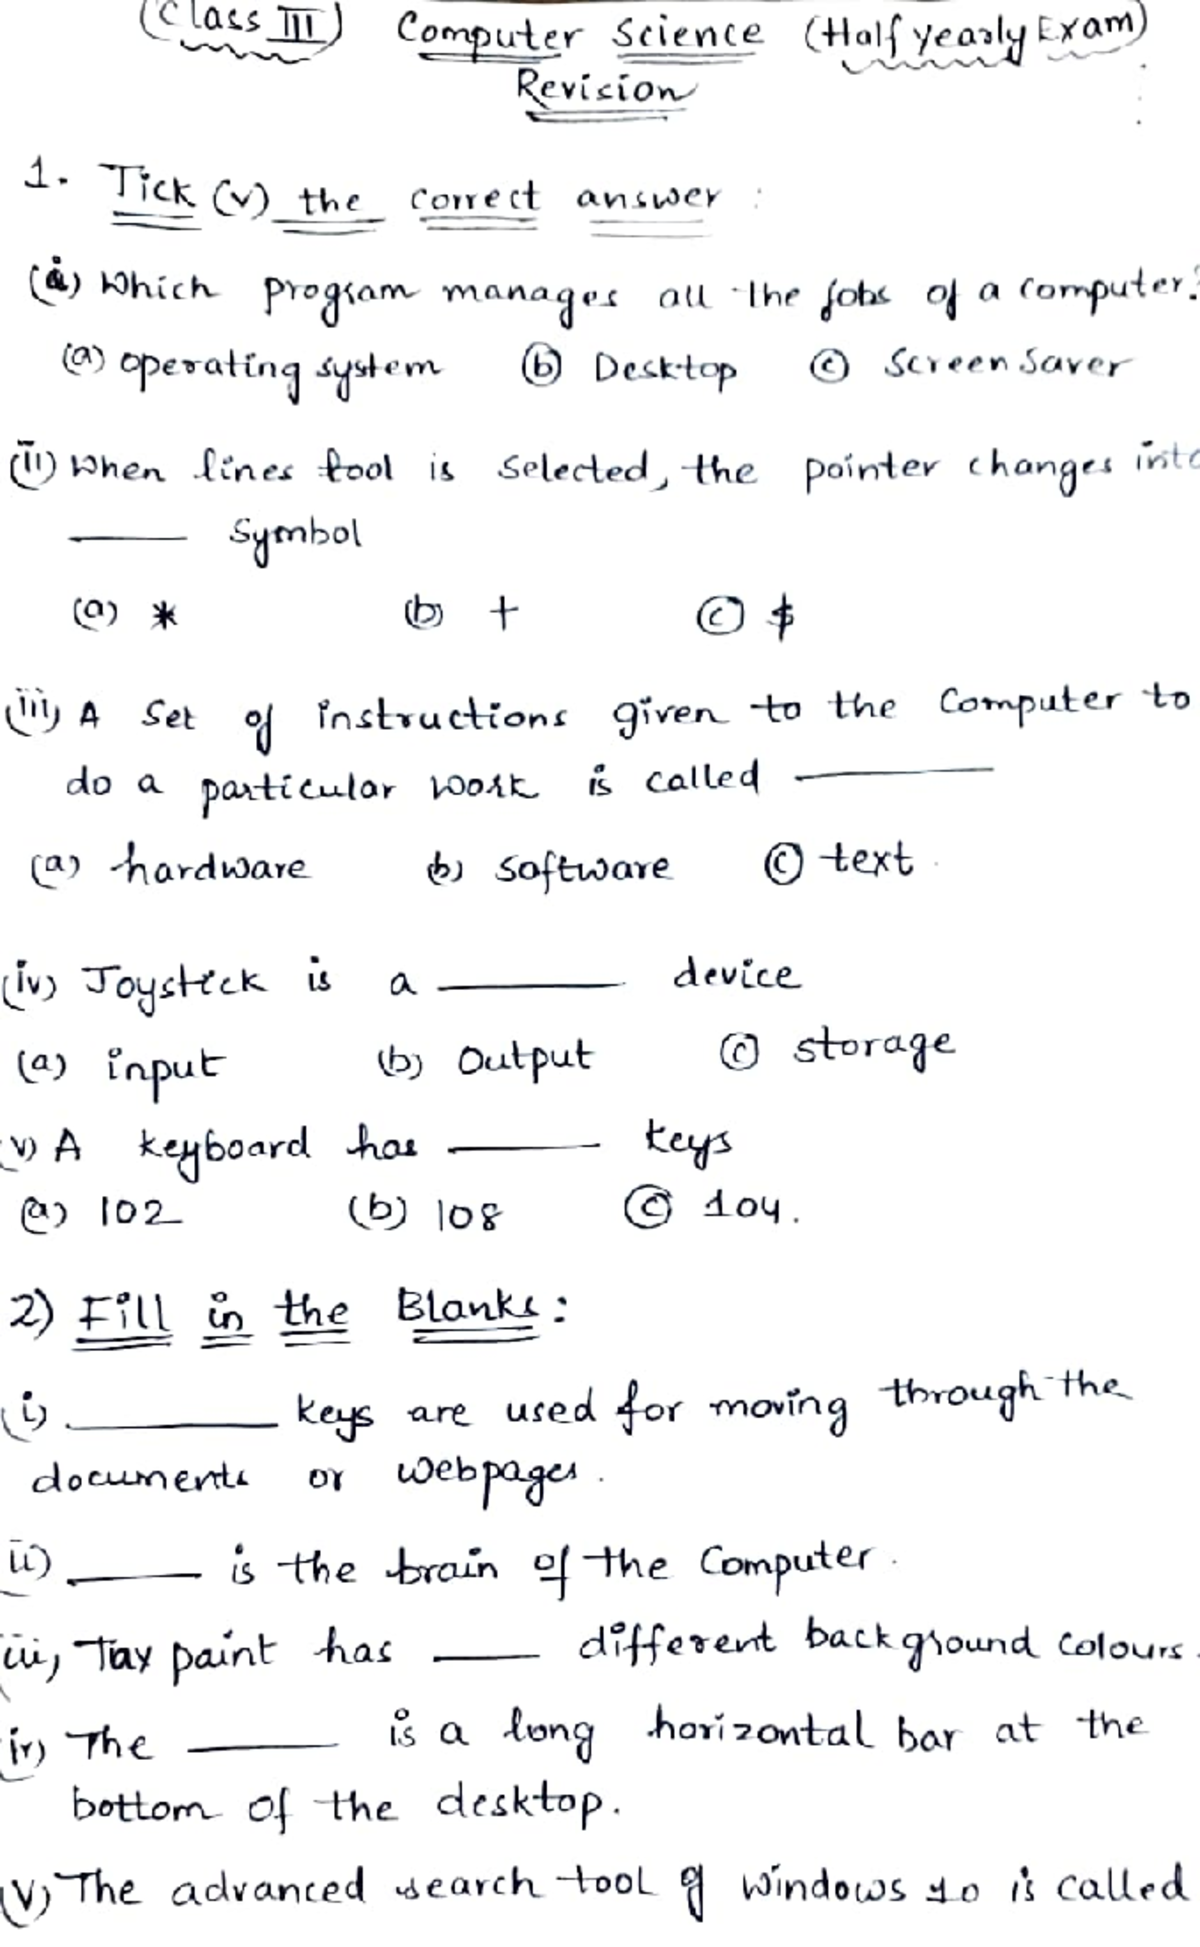 (Class III) Computer Science (Half yearly Exam)
Revision
1. Tick (v) the correct answer :
(i) Which program manages all the jobs of a computer?
(a) operating system (b) Desktop (c) Screen Saver
(ii) When lines tool is selected, the pointer changes into
____ Symbol
(a) * (b) + (c) $
(iii) A set of instructions given to the Computer to
do a particular work is called ____
(a) hardware (b) software (c) text
(iv) Joystick is a ____ device
(a) input (b) Output (c) storage
v) A keyboard has ____ keys
(a) 102 (b) 108 (c) 104.
2) Fill in the Blanks :
(i) ____ keys are used for moving through the
documents or webpages.
ii) ____ is the brain of the Computer.
iii) Tux paint has ____ different background colours.
iv) The ____ is a long horizontal bar at the
bottom of the desktop.
(v) The advanced search tool of windows 10 is called